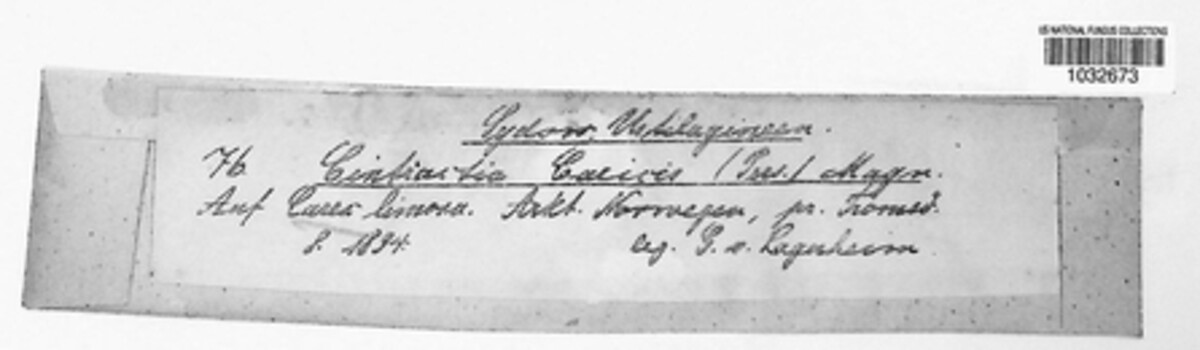 US NATIONAL FUNGUS COLLECTIONS
1032673
Sydow, Ustilagineen.
76. Cintractia Caricis (Pers.) Magn.
Auf Carex limosa. Arkt. Norwegen, pr. Tromsö.
8. 1894. leg. G. v. Lagerheim.